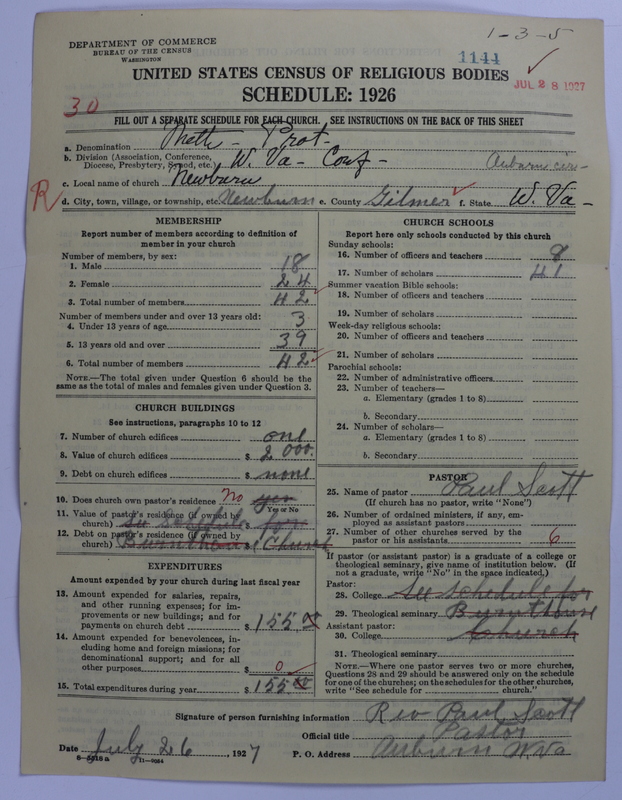 1-3-5
DEPARTMENT OF COMMERCE
BUREAU OF THE CENSUS
WASHINGTON
1144
UNITED STATES CENSUS OF RELIGIOUS BODIES
JUL 28 1927
SCHEDULE: 1926
30
FILL OUT A SEPARATE SCHEDULE FOR EACH CHURCH. SEE INSTRUCTIONS ON THE BACK OF THIS SHEET
a. Denomination Meth - Prot -
b. Division (Association, Conference, Diocese, Presbytery, Synod, etc.) W. Va - Conf - Auburn cir -
c. Local name of church Newburn
R
d. City, town, village, or township, etc. Newburn e. County Gilmer f. State W. Va -
MEMBERSHIP
Report number of members according to definition of
member in your church
Number of members, by sex:
1. Male 18
2. Female 24
3. Total number of members 42
Number of members under and over 13 years old:
4. Under 13 years of age 3
5. 13 years old and over 39
6. Total number of members 42
NOTE.—The total given under Question 6 should be the
same as the total of males and females given under Question 3.
CHURCH BUILDINGS
See instructions, paragraphs 10 to 12
7. Number of church edifices one
8. Value of church edifices $ 2000.
9. Debt on church edifices $ none
10. Does church own pastor's residence No yes
Yes or No
11. Value of pastor's residence (if owned by
church) See schedule $ for
12. Debt on pastor's residence (if owned by
church) Burnthouse $ Church
EXPENDITURES
Amount expended by your church during last fiscal year
13. Amount expended for salaries, repairs,
and other running expenses; for im-
provements or new buildings; and for
payments on church debt $ 155 00
14. Amount expended for benevolences, in-
cluding home and foreign missions; for
denominational support; and for all
other purposes $ 0
15. Total expenditures during year $ 155 00
CHURCH SCHOOLS
Report here only schools conducted by this church
Sunday schools:
16. Number of officers and teachers 8
17. Number of scholars 41
Summer vacation Bible schools:
18. Number of officers and teachers
19. Number of scholars
Week-day religious schools:
20. Number of officers and teachers
21. Number of scholars
Parochial schools:
22. Number of administrative officers
23. Number of teachers—
a. Elementary (grades 1 to 8)
b. Secondary
24. Number of scholars—
a. Elementary (grades 1 to 8)
b. Secondary
PASTOR
25. Name of pastor Paul Scott
(If church has no pastor, write "None")
26. Number of ordained ministers, if any, em-
ployed as assistant pastors
27. Number of other churches served by the
pastor or his assistants 6
If pastor (or assistant pastor) is a graduate of a college or
theological seminary, give name of institution below. (If
not a graduate, write "No" in the space indicated.)
Pastor:
28. College See schedule for
29. Theological seminary Burnthouse
Assistant pastor:
30. College Church
31. Theological seminary
NOTE.—Where one pastor serves two or more churches,
Questions 28 and 29 should be answered only on the schedule
for one of the churches; on the schedules for the other churches,
write "See schedule for church."
Signature of person furnishing information Rev Paul Scott
Official title Pastor
Date July 26, 1927 P. O. Address Auburn W. Va
8-5518a 11-9684